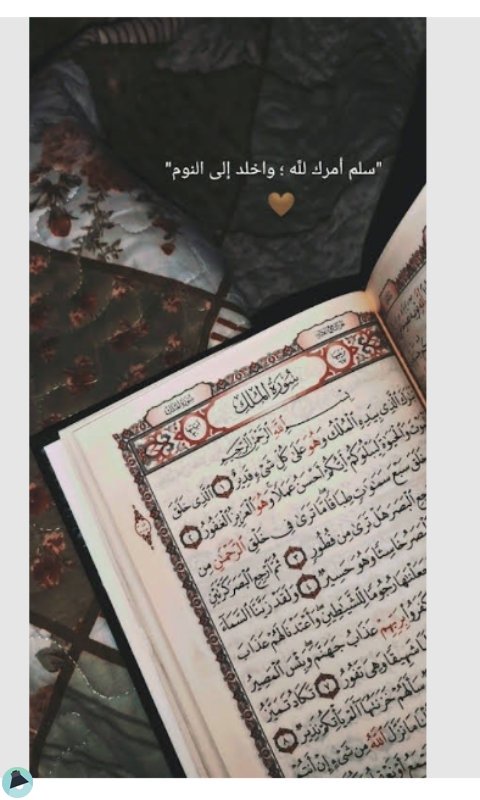 "سلم أمرك للّه ؛ واخلد إلى النوم"
سُورَةُ المُلْكِ
بِسْمِ اللَّهِ الرَّحْمَنِ الرَّحِيمِ
الَّذِي بِيَدِهِ الْمُلْكُ وَهُوَ عَلَى كُلِّ شَيْءٍ قَدِيرٌ ١ الَّذِي خَلَقَ
وَالْحَيَاةَ لِيَبْلُوَكُمْ أَيُّكُمْ أَحْسَنُ عَمَلًا وَهُوَ الْعَزِيزُ الْغَفُورُ ٢
خَلَقَ سَبْعَ سَمَاوَاتٍ طِبَاقًا مَا تَرَى فِي خَلْقِ الرَّحْمَنِ مِنْ
الْبَصَرَ هَلْ تَرَى مِنْ فُطُورٍ ٣ ثُمَّ ارْجِعِ الْبَصَرَ كَرَّتَيْنِ
خَاسِئًا وَهُوَ حَسِيرٌ ٤ وَلَقَدْ زَيَّنَّا السَّمَاءَ
رُجُومًا لِلشَّيَاطِينِ وَأَعْتَدْنَا لَهُمْ عَذَابَ
كَفَرُوا بِرَبِّهِمْ عَذَابُ جَهَنَّمَ وَبِئْسَ الْمَصِيرُ
شَهِيقًا وَهِيَ تَفُورُ ٧ تَكَادُ تَمَيَّزُ
سَأَلَهُمْ خَزَنَتُهَا أَلَمْ يَأْتِكُمْ نَذِيرٌ ٨
مَا نَزَّلَ اللَّهُ مِنْ شَيْءٍ إِنْ أَنْتُمْ